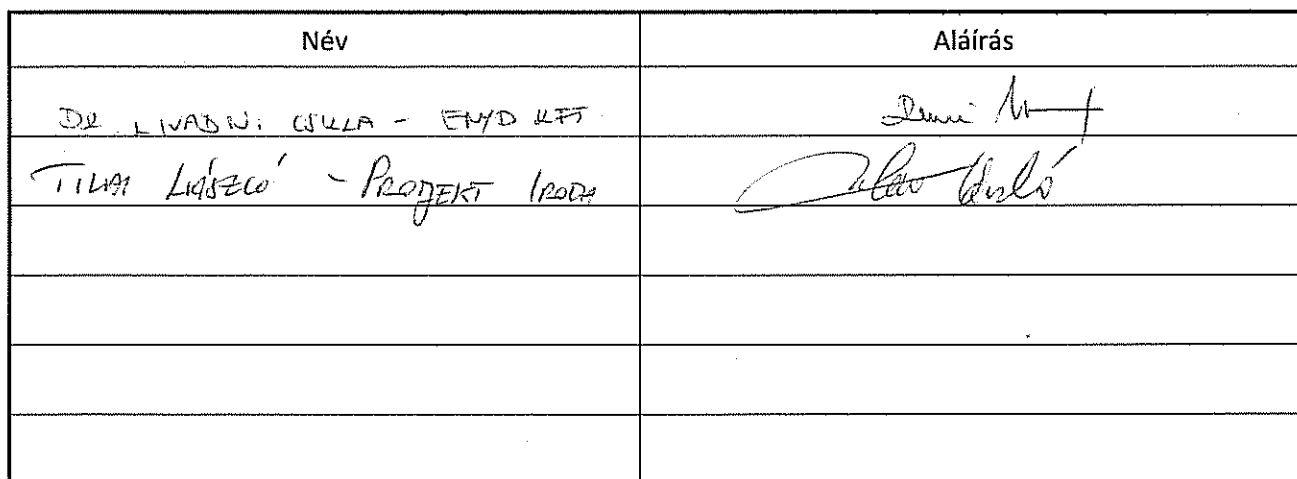 Név Aláírás
DR LIVADNI CSILLA - ENYD KFT
TILAI LÁSZLÓ - PROJEKT IRODA László